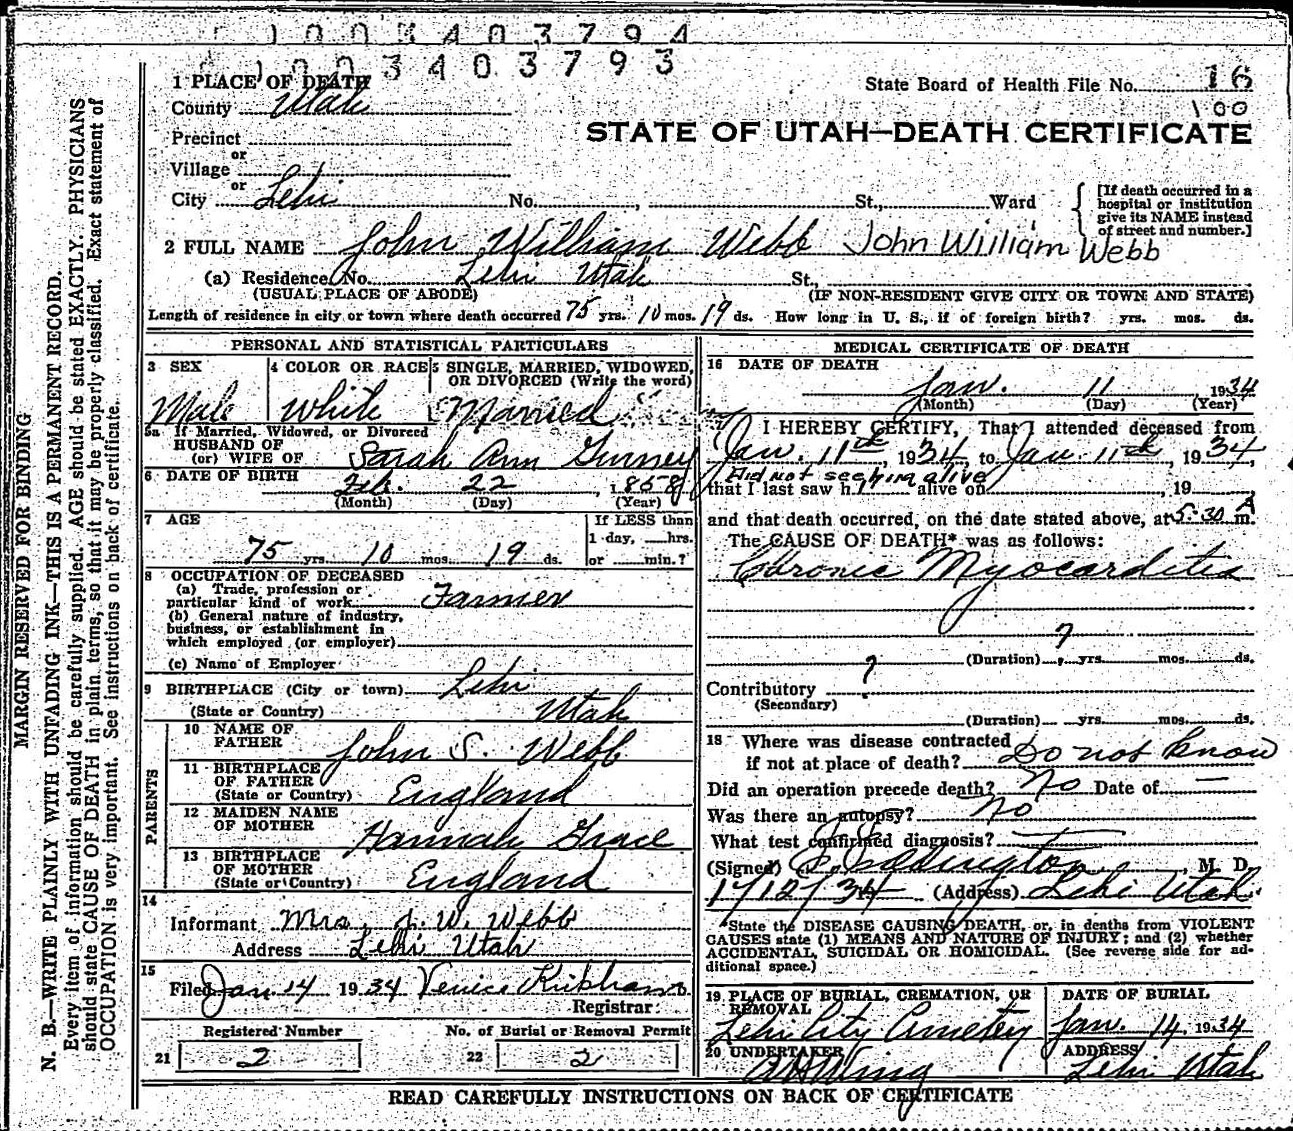 1 0 0 3 4 0 3 7 9 4
1 0 0 3 4 0 3 7 9 3
MARGIN RESERVED FOR BINDING
N. B.—WRITE PLAINLY WITH UNFADING INK—THIS IS A PERMANENT RECORD.
Every item of information should be carefully supplied. AGE should be stated EXACTLY. PHYSICIANS
should state CAUSE OF DEATH in plain terms, so that it may be properly classified. Exact statement of
OCCUPATION is very important. See instructions on back of certificate.
State Board of Health File No. 16
100
STATE OF UTAH—DEATH CERTIFICATE
1 PLACE OF DEATH
County Utah
Precinct
or
Village
or
City Lehi No. , St., Ward
[If death occurred in a
hospital or institution
give its NAME instead
of street and number.]
2 FULL NAME John William Webb John William Webb
(a) Residence No. Lehi Utah St.,
(USUAL PLACE OF ABODE) (IF NON-RESIDENT GIVE CITY OR TOWN AND STATE)
Length of residence in city or town where death occurred 75 yrs. 10 mos. 19 ds. How long in U. S., if of foreign birth? yrs. mos. ds.
PERSONAL AND STATISTICAL PARTICULARS
3 SEX
Male
4 COLOR OR RACE
White
5 SINGLE, MARRIED, WIDOWED,
OR DIVORCED (Write the word)
Married
5a If Married, Widowed, or Divorced
HUSBAND OF
(or) WIFE OF Sarah Ann Gurney
6 DATE OF BIRTH Feb. 22, 1858
(Month) (Day) (Year)
7 AGE
75 yrs. 10 mos. 19 ds.
If LESS than
1 day, hrs.
or min.?
8 OCCUPATION OF DECEASED
(a) Trade, profession or
particular kind of work Farmer
(b) General nature of industry,
business, or establishment in
which employed (or employer)
(c) Name of Employer
9 BIRTHPLACE (City or town) Lehi
(State or Country) Utah
PARENTS
10 NAME OF
FATHER John S. Webb
11 BIRTHPLACE
OF FATHER
(State or Country) England
12 MAIDEN NAME
OF MOTHER Hannah Grace
13 BIRTHPLACE
OF MOTHER
(State or Country) England
14
Informant Mrs. J. W. Webb
Address Lehi Utah
15
Filed Jan 14 1934 Venice Kirkham
Registrar.
Registered Number
21 2
No. of Burial or Removal Permit
22 2
MEDICAL CERTIFICATE OF DEATH
16 DATE OF DEATH
Jan. 11 1934
(Month) (Day) (Year)
I HEREBY CERTIFY, That I attended deceased from
Jan. 11th, 1934, to Jan. 11th, 1934,
Did not see him alive
that I last saw h alive on , 19
and that death occurred, on the date stated above, at 5:30 A m.
The CAUSE OF DEATH* was as follows:
Chronic Myocarditis
?
(Duration) yrs. mos. ds.
?
Contributory
(Secondary)
(Duration) yrs. mos. ds.
18 Where was disease contracted
if not at place of death? Do not know
Did an operation precede death? No Date of —
Was there an autopsy? No
What test confirmed diagnosis? —
(Signed) Eddington, M. D.
1/12/34 (Address) Lehi Utah
*State the DISEASE CAUSING DEATH, or, in deaths from VIOLENT
CAUSES state (1) MEANS AND NATURE OF INJURY; and (2) whether
ACCIDENTAL, SUICIDAL OR HOMICIDAL. (See reverse side for ad-
ditional space.)
19 PLACE OF BURIAL, CREMATION, OR
REMOVAL
Lehi City Cemetery
DATE OF BURIAL
Jan. 14, 1934
20 UNDERTAKER
Wing
ADDRESS
Lehi Utah
READ CAREFULLY INSTRUCTIONS ON BACK OF CERTIFICATE